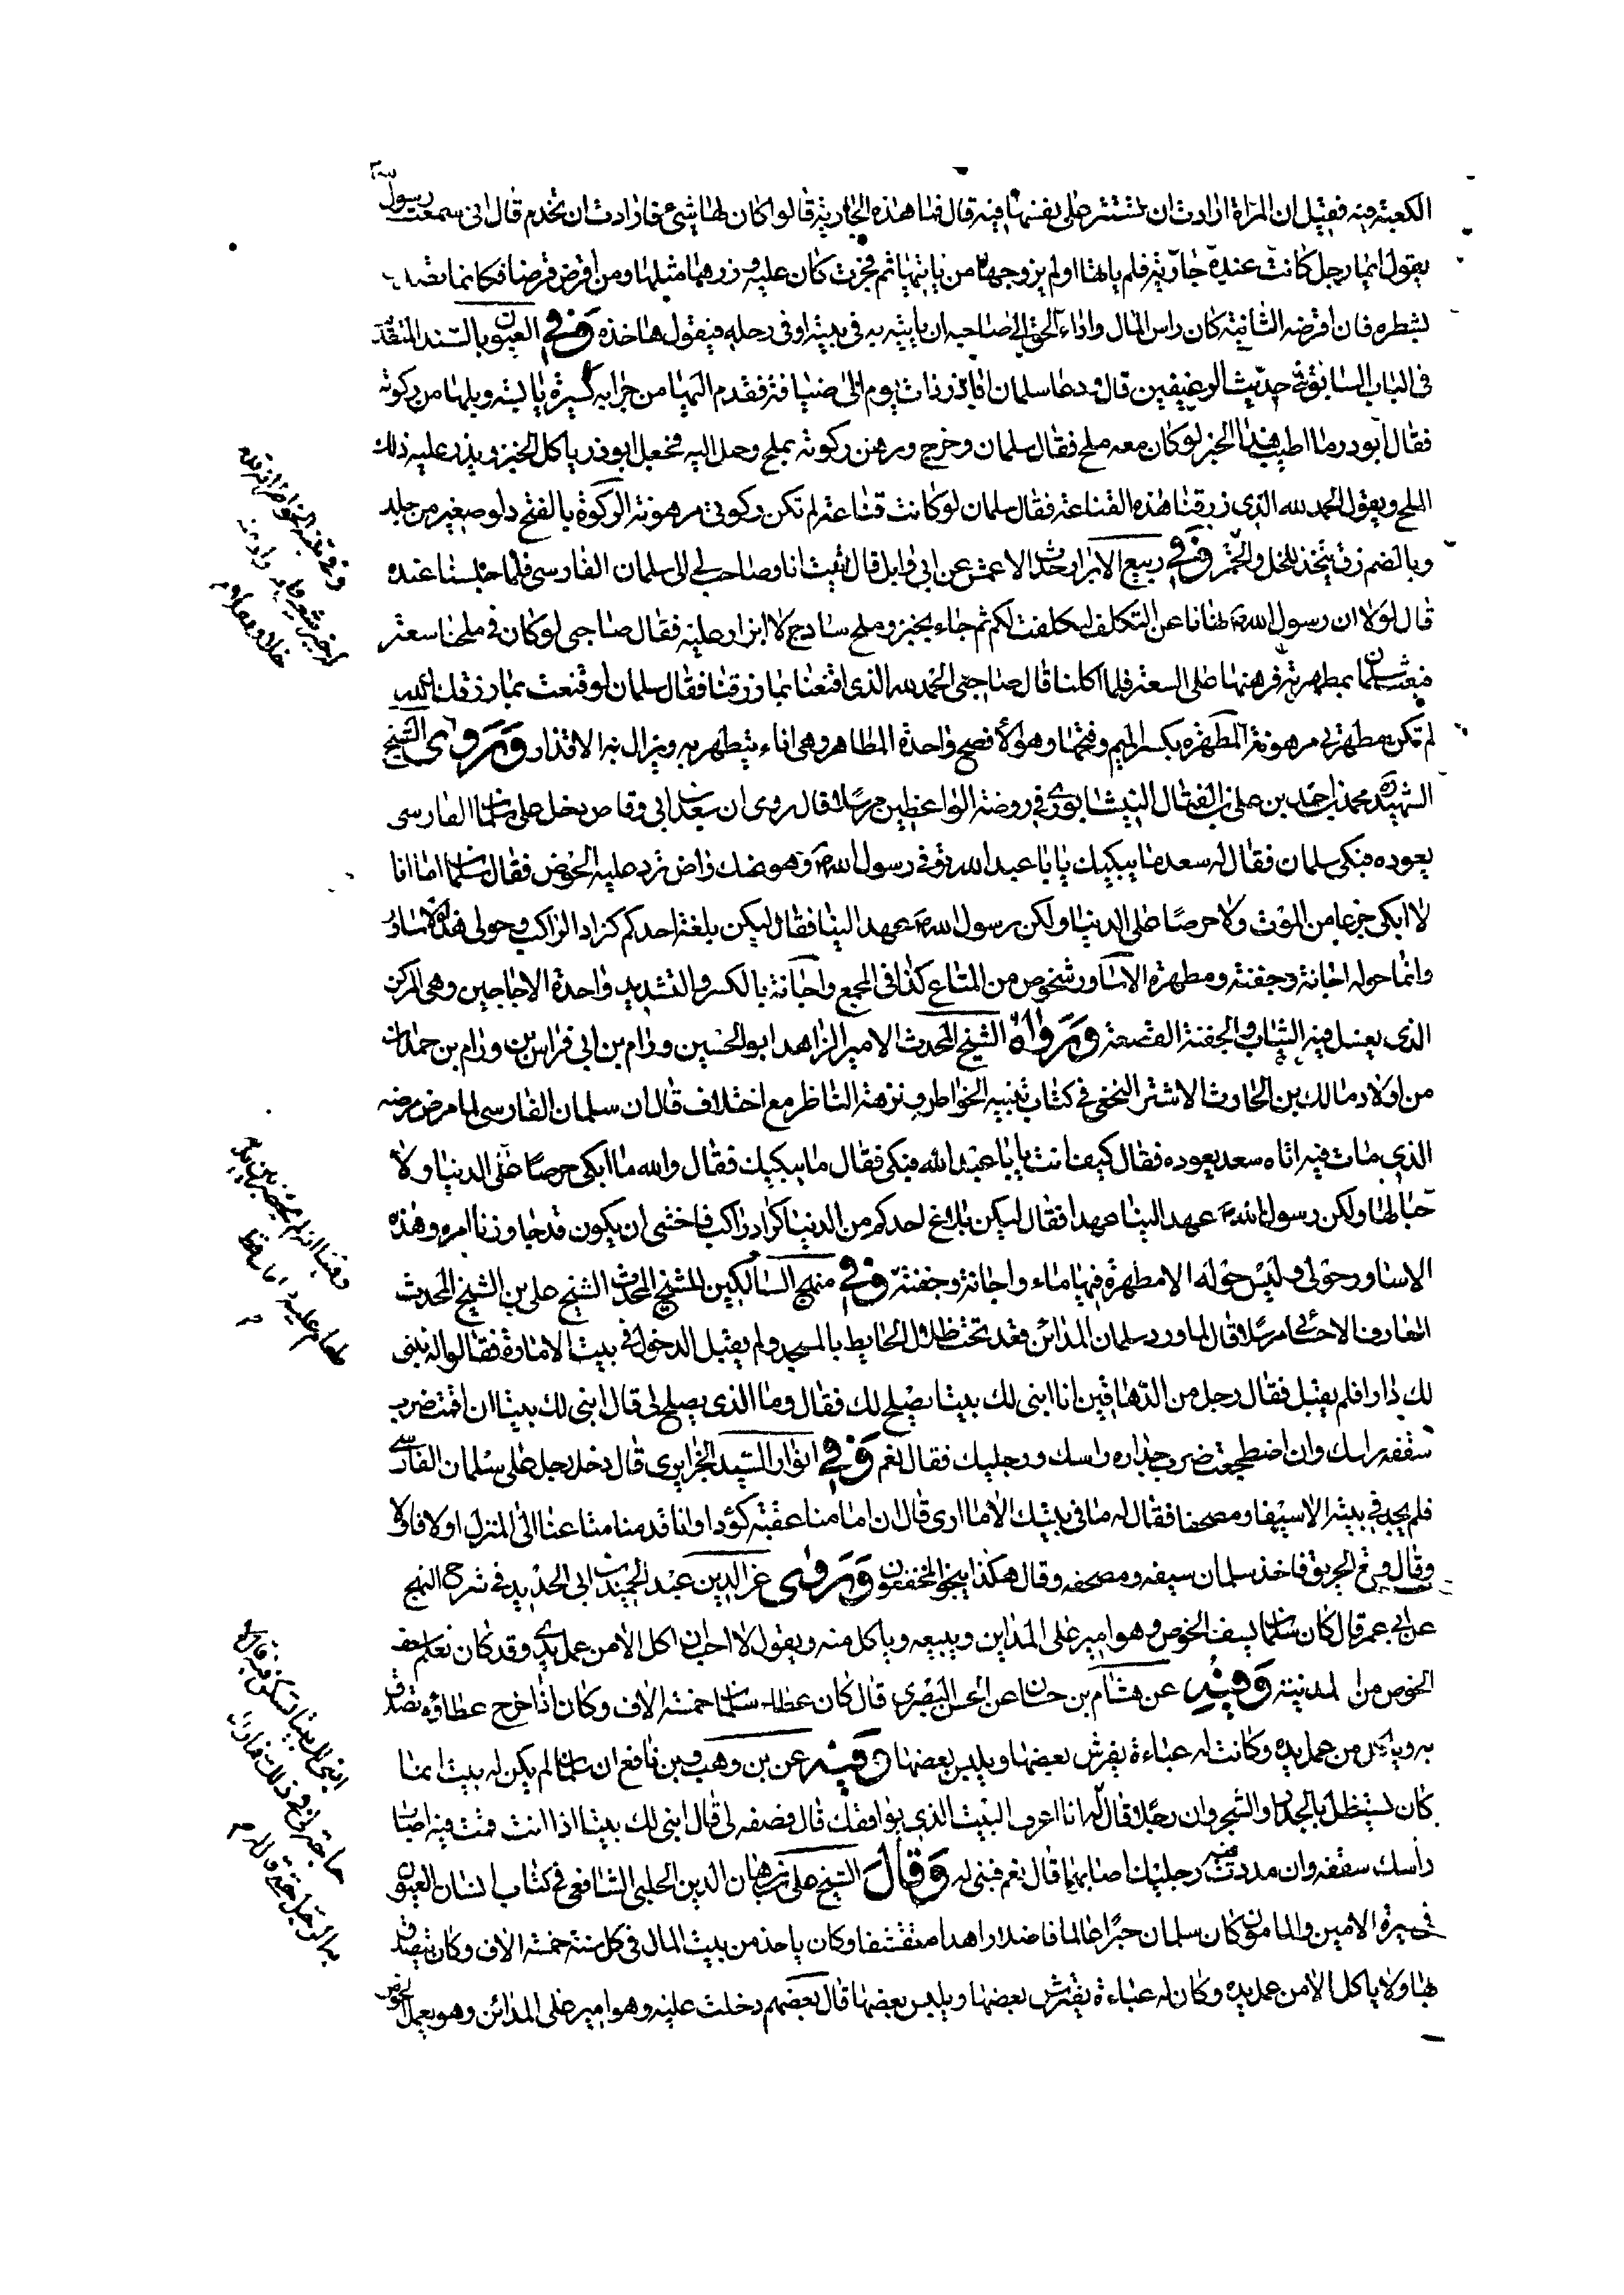 الكعبة فيه فقيل ان المراة ارادت ان تستتر على نفسها فيه قال فما هذه الجارية قالوا كان لها شيء فارادت ان تخدم قال انى سمعت رسول
يقول ايما رجل كانت عنده جارية فلم ياتها او لم يزوجها من ياتيها ثم فجرت كان عليه وزرها مثلها ومن اقرض قرضا فكانما تصدق
بشطره فان اقرضه الثانية كان راس المال واداء الحق الى صاحبه ان ياتيه به فى بيته او فى رحله فيقول ها خذه وفي العيون بالسند المتقدم
فى الباب السابق فى حديث الرغيفين قال دعا سلمان اباذر ذات يوم الى ضيافة فقدم اليه من جرابه كسيرة يابسة وبلها من ركوته
فقال ابوذر ما اطيب هذا الخبز لو كان معه ملح فقال سلمان وخرج ورهن ركوته بملح وحمل اليه فجعل ابوذر ياكل الخبز ويذر عليه ذلك
الملح ويقول الحمد لله الذى رزقنا هذه القناعة فقال سلمان لو كانت قناعة لم تكن ركوتى مرهونة الركوة بالفتح دلو صغير من جلد
وبالضم زق يتخذ للخل والخمر وفي ربيع الابرار حدث الاعمش عن ابى وايل قال ذهبت انا وصاحب لى الى سلمان الفارسى فلما جلسنا عنده
قال لولا ان رسول الله ص نهانا عن التكلف لتكلفت لكم ثم جاء بخبز وملح ساذج لا ابزار عليه فقال صاحبى لو كان فى ملحنا سعتر
فبعث سلمان بمطهرته فرهنها على السعتر فلما اكلنا قال صاحبى الحمد لله الذى اقنعنا بما رزقنا فقال سلمان لو قنعت بما رزقك الله
لم تكن مطهرتى مرهونة المطهرة بكسر الميم وفتحها وهو افصح واحدة المطاهر وهى اناء يتطهر به ويزال به الاقذار وروى الشيخ
الشهيد محمد بن احمد بن على بن الفتال النيشابورى فى روضة الواعظين مرسلا قال روى ان سعد بن ابى وقاص دخل على سلمان الفارسى
يعوده فبكى سلمان فقال له سعد ما يبكيك يا ابا عبد الله توفى رسول الله ص وهو عنك راض ترد عليه الحوض فقال سلمان اما انا
لا ابكى جزعا من الموت ولا حرصا على الدنيا ولكن رسول الله ص عهد الينا فقال ليكن بلغة احدكم كزاد الراكب وحولى هذه الاساود
وانما حوله اجانة وجفنة ومطهرة الاساود شخوص من المتاع كذا فى المجمع واجانة بالكسر والتشديد واحدة الاجاجين وهى المركن
الذى يغسل فيه الثياب والجفنة القصعة ورواه الشيخ المحدث الامير الزاهد ابو الحسين ورام بن ابى فراس بن ورام بن حمدان
من اولاد مالك بن الحارث الاشتر النخعى فى كتاب تنبيه الخواطر ونزهة الناظر مع اختلاف قال ان سلمان الفارسى لما مرض مرضه
الذى مات فيه اتاه سعد يعوده فقال كيف انت يا ابا عبد الله فبكى فقال ما يبكيك فقال والله ما ابكى حرصا على الدنيا ولا
حبا لها ولكن رسول الله ص عهد الينا عهدا فقال ليكن بلاغ احدكم من الدنيا كزاد راكب فاخشى ان يكون قد جاوزنا امره وهذه
الاساود حولى وليس حوله الا مطهرة فيها ماء واجانة وجفنة وفي منهج السالكين للشيخ المحدث الشيخ على بن الشيخ المحدث
العارف الاحسائى مرسلا قال لما ورد سلمان المدائن قعد تحت ظلال الحايط بالمسجد ولم يقبل الدخول فى بيت الامارة فقالوا له نبنى
لك دارا فلم يقبل فقال رجل من الدهاقين انا ابنى لك بيتا يصلح لك فقال وما الذى يصلح لى قال ابنى لك بيتا ان اقمت ضرب
سقفه راسك وان اضطجعت ضرب جداره راسك ورجليك فقال نعم وفي انوار السيد الجزايرى قال دخل رجل على سلمان الفارسى
فلم يجد فى بيته الا سيفا ومصحفا فقال له ما فى بيتك الا ما ارى قال ان امامنا عقبة كؤدا وانا قدمنا متاعنا الى المنزل اولا فاولا
وقال وقع الحريق فاخذ سلمان سيفه ومصحفه وقال هكذا ينجو المخفون وروى عز الدين عبد الحميد بن ابى الحديد فى شرح النهج
عن ابى عمر قال كان سلمان يسف الخوص وهو امير على المداين ويبيعه وياكل منه ويقول لا احب ان اكل الا من عمل يدى وقد كان تعلم سف
الخوص من المدينة وفيه عن هشام بن حسان عن الحسن البصرى قال كان عطاء سلمان خمسة الاف وكان اذا خرج عطاؤه تصدق
به وياكل من عمل يده وكانت له عباءة يفرش بعضها ويلبس بعضها وفيه عن بن وهب وبن نافع ان سلمان لم يكن له بيت انما
كان يستظل بالجدر والشجر وان رجلا قال له انا اعرف البيت الذى يوافقك قال فصفه لى قال ابنى لك بيتا اذا انت قمت فيه اصاب
راسك سقفه وان مددت فيه رجليك اصابهما قال نعم فبنى له وقال الشيخ على بن برهان الدين الحلبى الشافعى فى كتاب انسان العيون
فى سيرة الامين والمامون كان سلمان حبرا عالما فاضلا زاهدا متقشفا وكان ياخذ من بيت المال فى كل سنة خمسة الاف وكان يتصدق
بها ولا ياكل الا من عمل يده وكان له عباءة يفترش بعضها ويلبس بعضها قال بعضهم دخلت عليه وهو امير على المدائن وهو يعمل الخوص